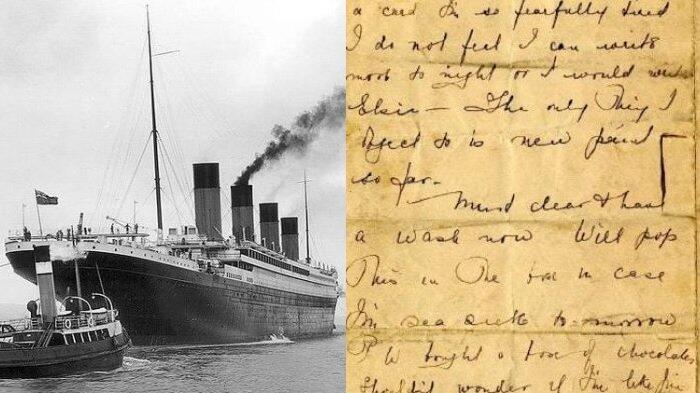 a card I'm so fearfully tired
I do not feel I can write
more to night or I would write
Elsie — The only thing I
object to is new paint
so far.
Must clear & have
a wash now Will pop
This in The box in case
I'm sea sick to-morrow
P W bought a box of chocolates
Shouldn't wonder if I'm like